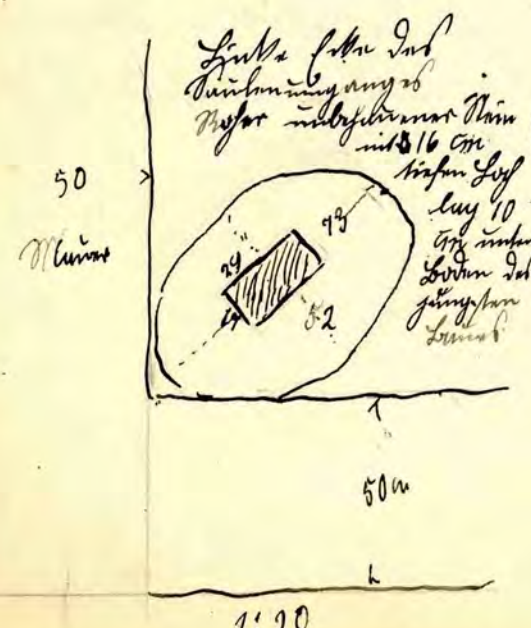 Linke Ecke des
Säulenumganges
Roher unbehauener Stein
mit 16 cm
tiefen Loch
lag 10
cm unter
Boden des
jüngsten
Baues
50
Mauer
73
24
52
50 cm
1:20